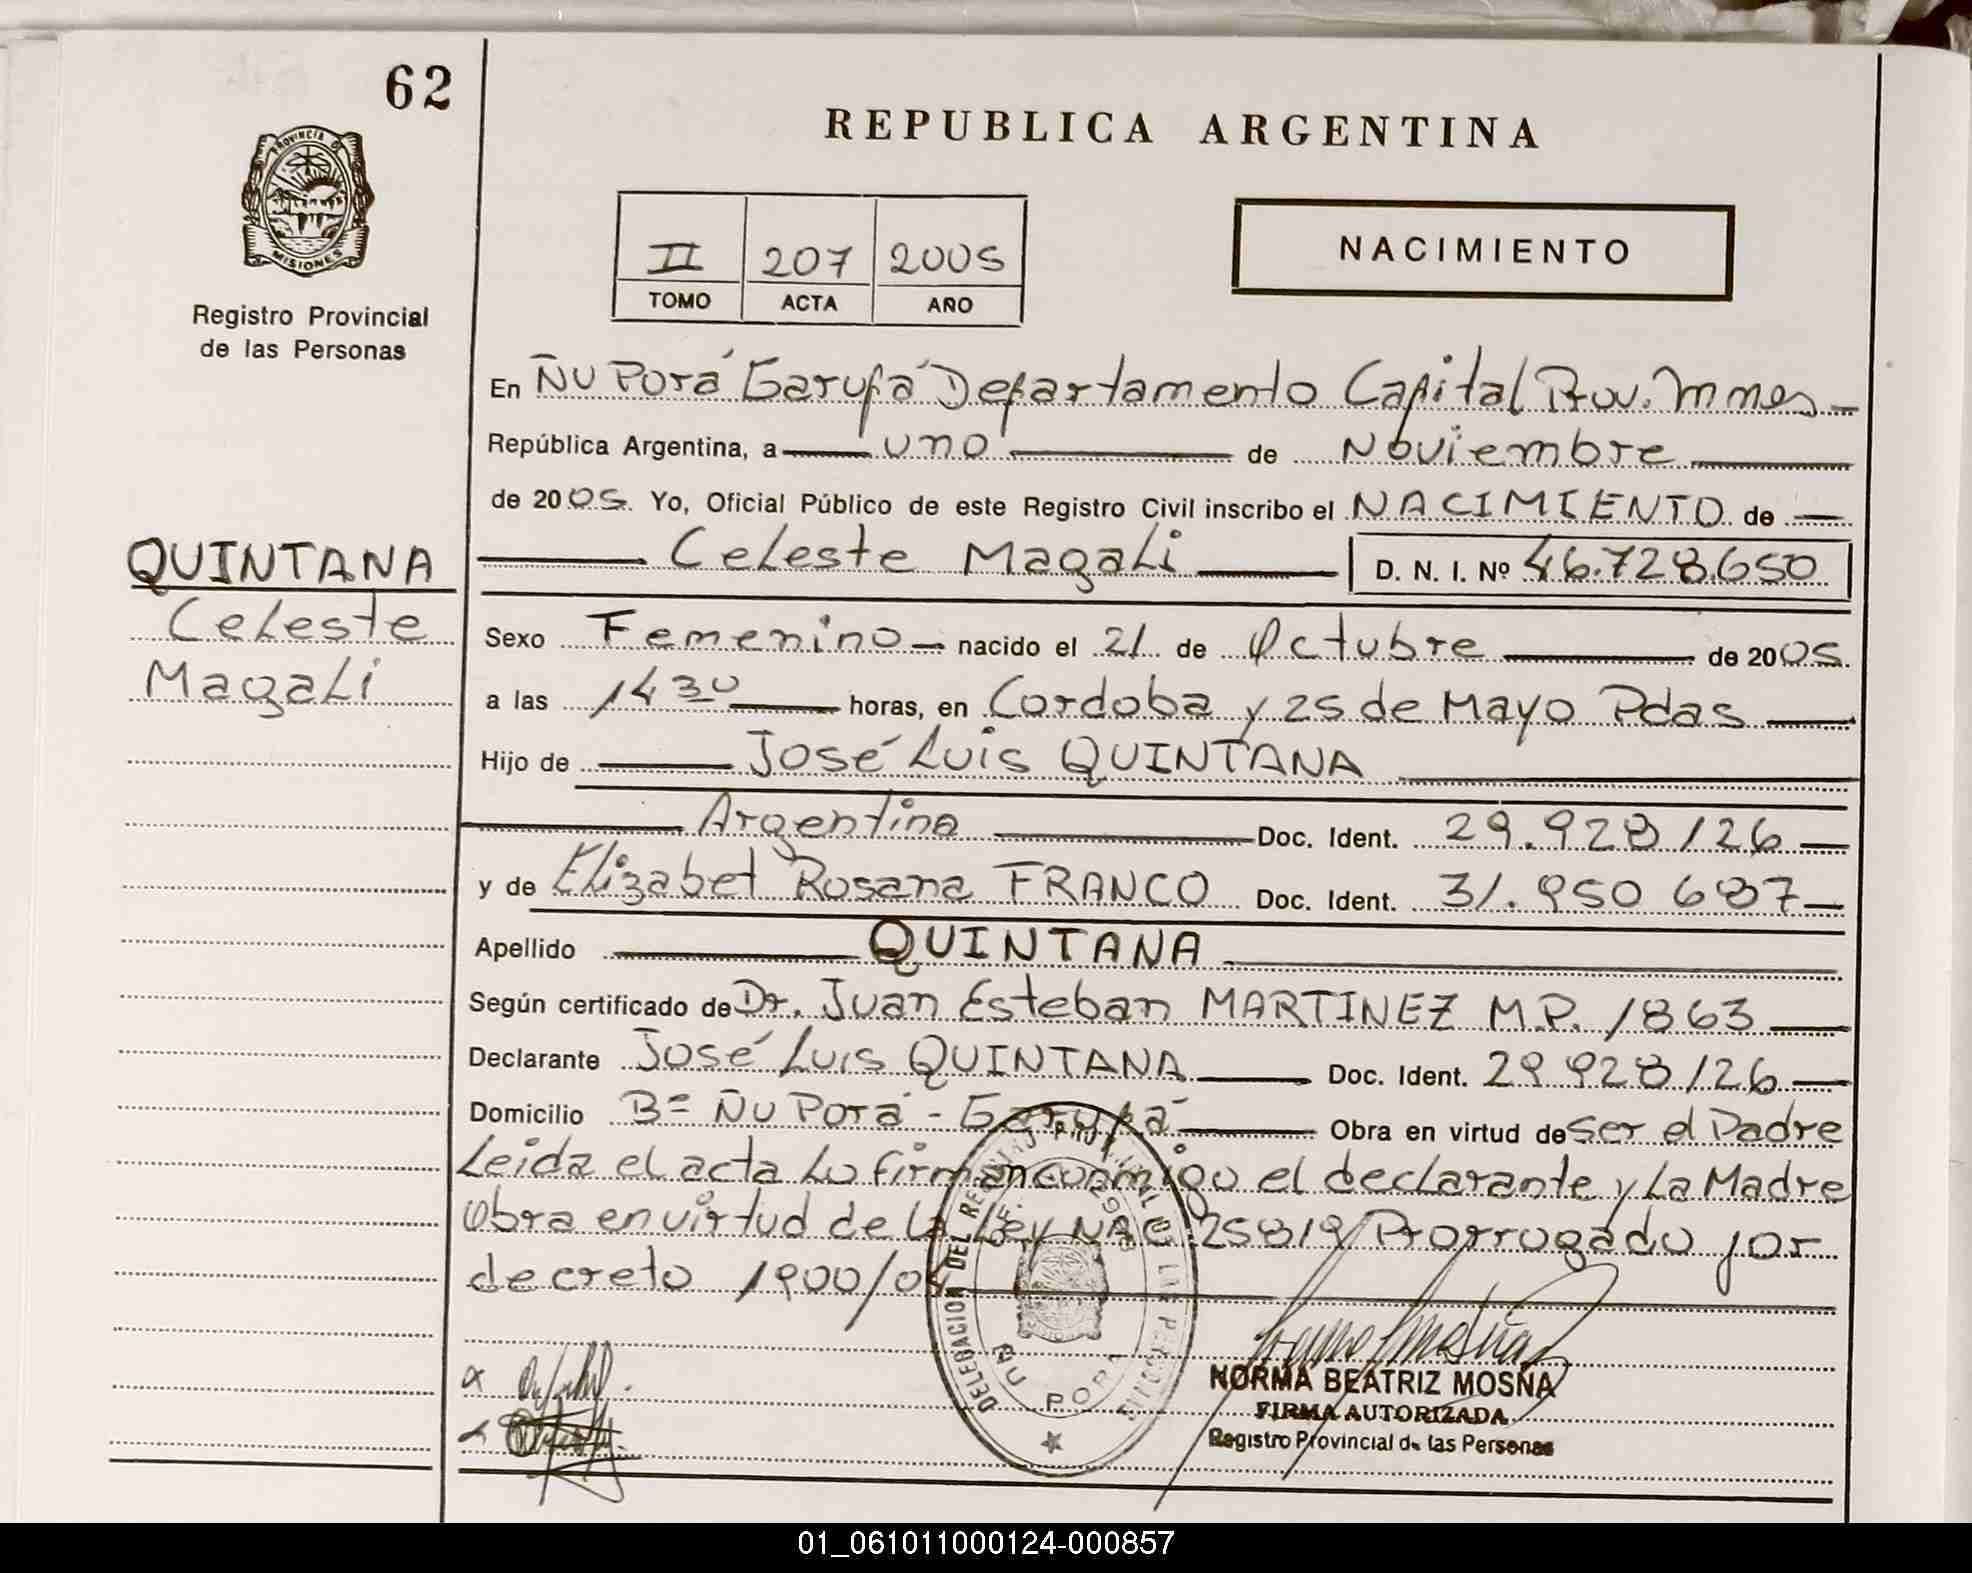 62
REPUBLICA ARGENTINA
PROVINCIA DE
MISIONES
Registro Provincial
de las Personas
II 207 2005
TOMO ACTA AÑO
NACIMIENTO
En Ñu Porá Garupá Departamento Capital Prov. Mnes
República Argentina, a uno de Noviembre
de 2005. Yo, Oficial Público de este Registro Civil inscribo el NACIMIENTO de
Celeste Magali D. N. I. Nº 46.728.650
QUINTANA
Celeste
Magali
Sexo Femenino nacido el 21 de Octubre de 2005.
a las 14 30 horas, en Cordoba y 25 de Mayo Pdas
Hijo de José Luis QUINTANA
Argentina Doc. Ident. 29.928 126
y de Elizabet Rosana FRANCO Doc. Ident. 31.950 687
Apellido QUINTANA
Según certificado de Dr. Juan Esteban MARTINEZ M.P. 1863
Declarante José Luis QUINTANA Doc. Ident. 29 928 126
Domicilio Bº Ñu Porá - Garupá Obra en virtud de Ser el Padre
Leida el acta Lo firman conmigo el declarante y La Madre
Obra en virtud de la Ley NAC. 25819 Prorrogado por
decreto 1900/04
DELEGACION DEL REGISTRO PROVINCIAL DE LAS PERSONAS
ÑU PORA
NORMA BEATRIZ MOSNA
FIRMA AUTORIZADA
Registro Provincial de las Personas
01_061011000124-000857